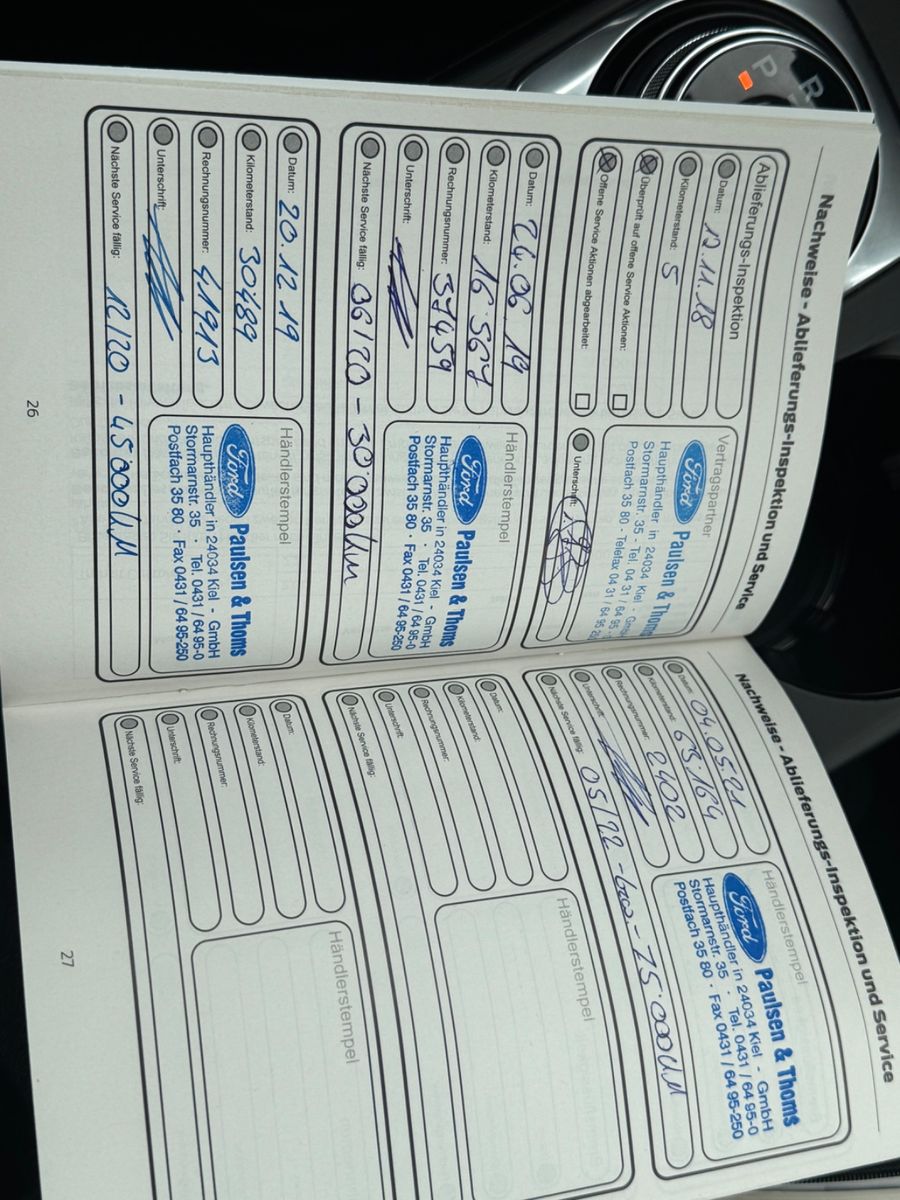 Nachweise - Ablieferungs-Inspektion und Service
Ablieferungs-Inspektion
Datum: 12.11.18
Kilometerstand: 5
Überprüft auf offene Service Aktionen:
Offene Service Aktionen abgearbeitet:
Vertragspartner
Ford Paulsen & Thoms
Haupthändler in 24034 Kiel - Gmb
Stormarnstr. 35 · Tel. 04 31 / 64 95
Postfach 35 80 · Telefax 04 31 / 64 95
Unterschrift:
Datum: 24.06.19
Kilometerstand: 16.567
Rechnungsnummer: 37459
Unterschrift:
Nächste Service fällig: 06/20 - 30.000km
Händlerstempel
Ford Paulsen & Thoms
Haupthändler in 24034 Kiel - GmbH
Stormarnstr. 35 · Tel. 0431 / 64 95-0
Postfach 35 80 · Fax 0431 / 64 95-250
Datum: 20.12.19
Kilometerstand: 30489
Rechnungsnummer: 41913
Unterschrift:
Nächste Service fällig: 12/20 - 45000KM
Händlerstempel
Ford Paulsen & Thoms
Haupthändler in 24034 Kiel - GmbH
Stormarnstr. 35 · Tel. 0431 / 64 95-0
Postfach 35 80 · Fax 0431 / 64 95-250
26
Nachweise - Ablieferungs-Inspektion und Service
Datum: 04.05.21
Kilometerstand: 63.164
Rechnungsnummer: 2402
Unterschrift:
Nächste Service fällig: 05/22 - 75.000KM
Händlerstempel
Ford Paulsen & Thoms
Haupthändler in 24034 Kiel - GmbH
Stormarnstr. 35 · Tel. 0431 / 64 95-0
Postfach 35 80 · Fax 0431 / 64 95-250
Datum:
Kilometerstand:
Rechnungsnummer:
Unterschrift:
Nächste Service fällig:
Händlerstempel
Datum:
Kilometerstand:
Rechnungsnummer:
Unterschrift:
Nächste Service fällig:
Händlerstempel
27
P
R